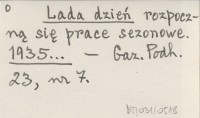 Lada dzień rozpocz-
ną się prace sezonowe.
1935... — Gaz. Podh.
23, nr 7.